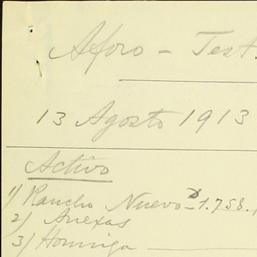 Aforo - Test.
13 Agosto 1913
Activo
1) Rancho Nuevo - 1.758.
2) Anexas
3) Hormiga